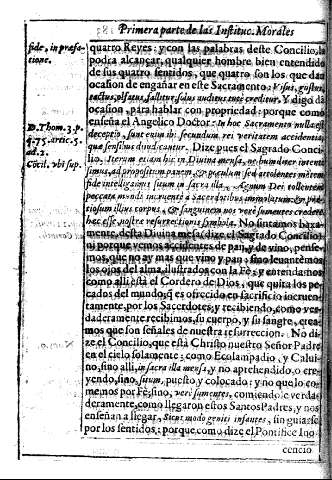 Primera parte de las Instituc. Morales
fide, in præfatione.
quatro Reyes: y con las palabras deste Concilio, lo
podra alcançar, qualquier hombre bien entendido
de sus quatro sentidos, que quatro son los que dan
ocasion de engañar en este Sacramento: Visus, gustus,
tactus, creditur. Y digo dã
ocasion, para hablar con propriedad: porque como
enseña el Angelico Doctor: In hoc Sacramento nulla est
D. Thom. 3. p.
q. 75. artic. 5.
ad. 2.
deceptio, sunt enim ibi secundum rei veritatem accidentia
quæ sensibus diiudicantur. Dize pues el Sagrado Concilio.
Cõcil. vbi sup.
Iterum etiam hic in Divina mensa, ne humiliter intenti
simus, ad propositum panem & poculum sed attolentes mentem
fide intelligamus situm in sacra illa Agnum Dei tollentem
peccata mundi incruentè a sacerdotibus immolatum: & pretiosum
illius corpus, & sanguinem nos verè sumentes credere
hæc esse nostræ resurrectionis symbola. No sintamos baxamente,
desta Divina mesa (dize el Sagrado Concilio)
ni porque vemos accidentes de pan, y de vino, pensemos,
que no ay mas que vino y pan: sino leuantemos
los ojos del alma, ilustrados con la Fè, y entendamos
como alli està el Cordero de Dios, que quita los pecados
del mundo, q̃ es ofrecido en sacrificio incruentamente,
por los Sacerdotes, y recibiendo, como verdaderamente
recibimos, su cuerpo, y su sangre, creamos
que son señales de nuestra resurreccion. No dize
el Concilio, que està Christo nuestro Señor Padre,
en el cielo solamente: como Ecolampadio, y Caluino,
sino alli, in sacra illa mensa, y no aprehendido, o creyendo,
sino, situm, puesto, y colocado: y no que lo comemos
por Fè, sino, verè sumentes, comiendole verdaderamente,
como llegaron estos Santos Padres, y nos
enseñan a llegar, Sicut modo geniti infantes, sin guiarse
por los sentidos: porque como dize el Pontifice Ino-
cencio